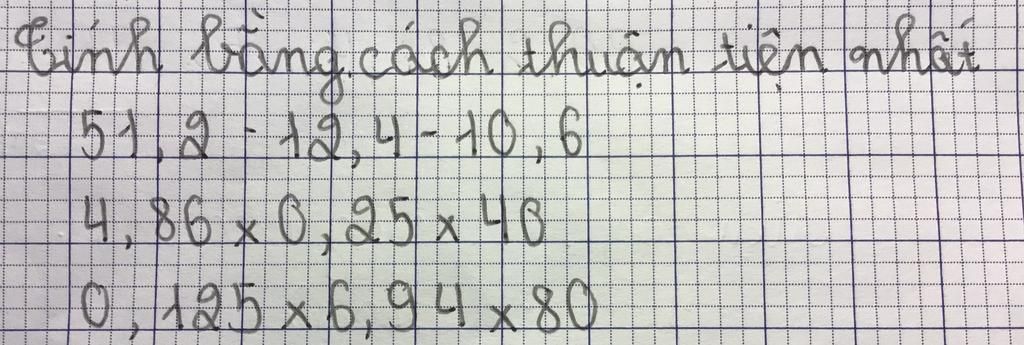 Tính bằng cách thuận tiện nhất
51,2 - 12,4 - 10,6
4,86 x 0,25 x 40
0,125 x 6,94 x 80